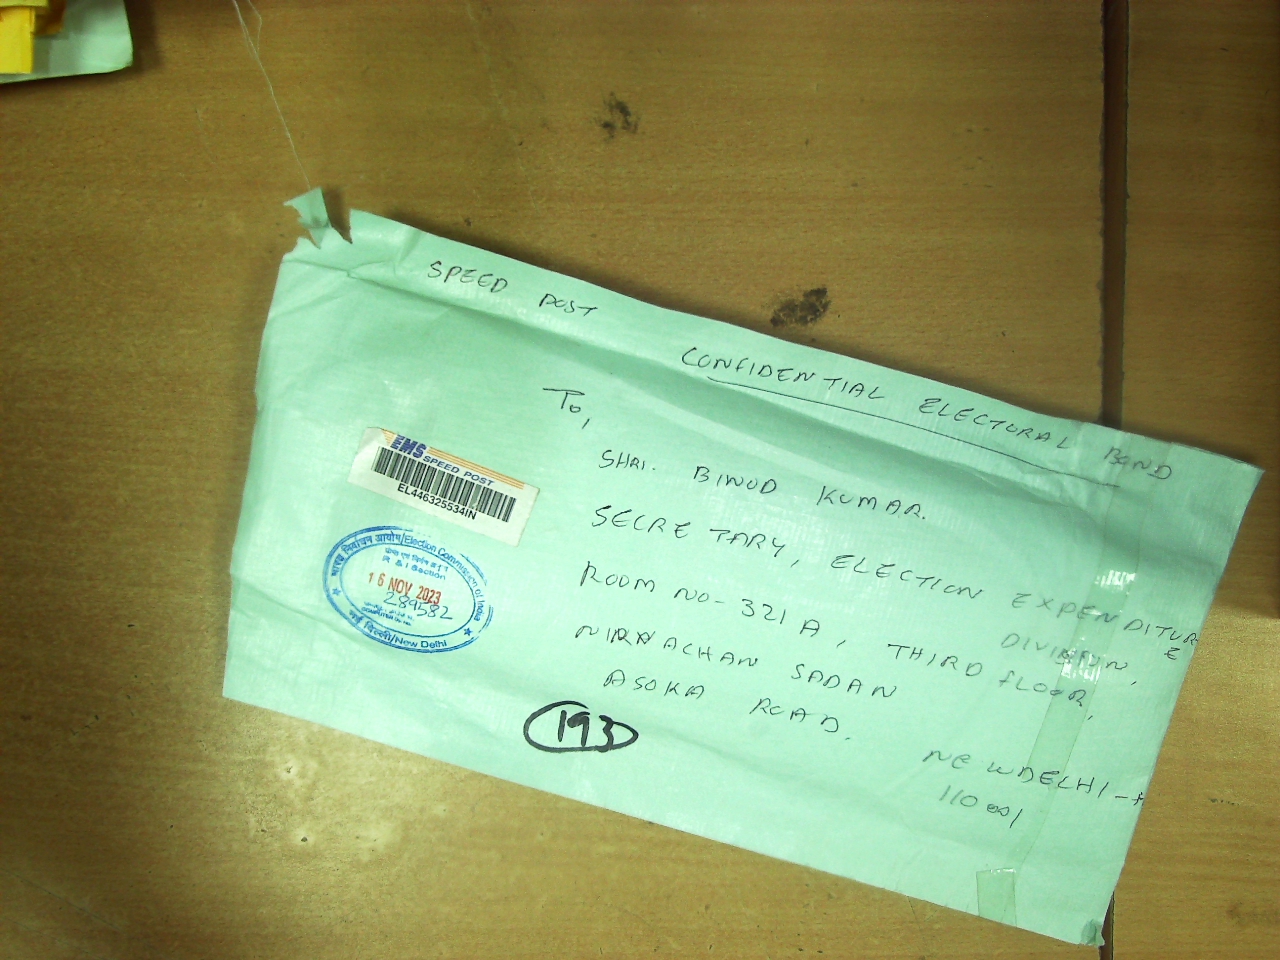 SPEED POST
CONFIDENTIAL ELECTORAL BOND
To,
SHRI. BINOD KUMAR.
SECRETARY, ELECTION EXPENDITURE
DIVISION,
ROOM NO-321A, THIRD FLOOR,
NIRVACHAN SADAN
ASOKA ROAD.
NEW DELHI-
110001
EMS SPEED POST
EL446325534IN
भारत निर्वाचन आयोग/Election Commission of India
R & I Section
16 NOV 2023
289582
नई दिल्ली/New Delhi
193